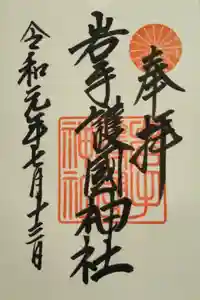 奉拝
岩手護國神社
令和元年七月十三日